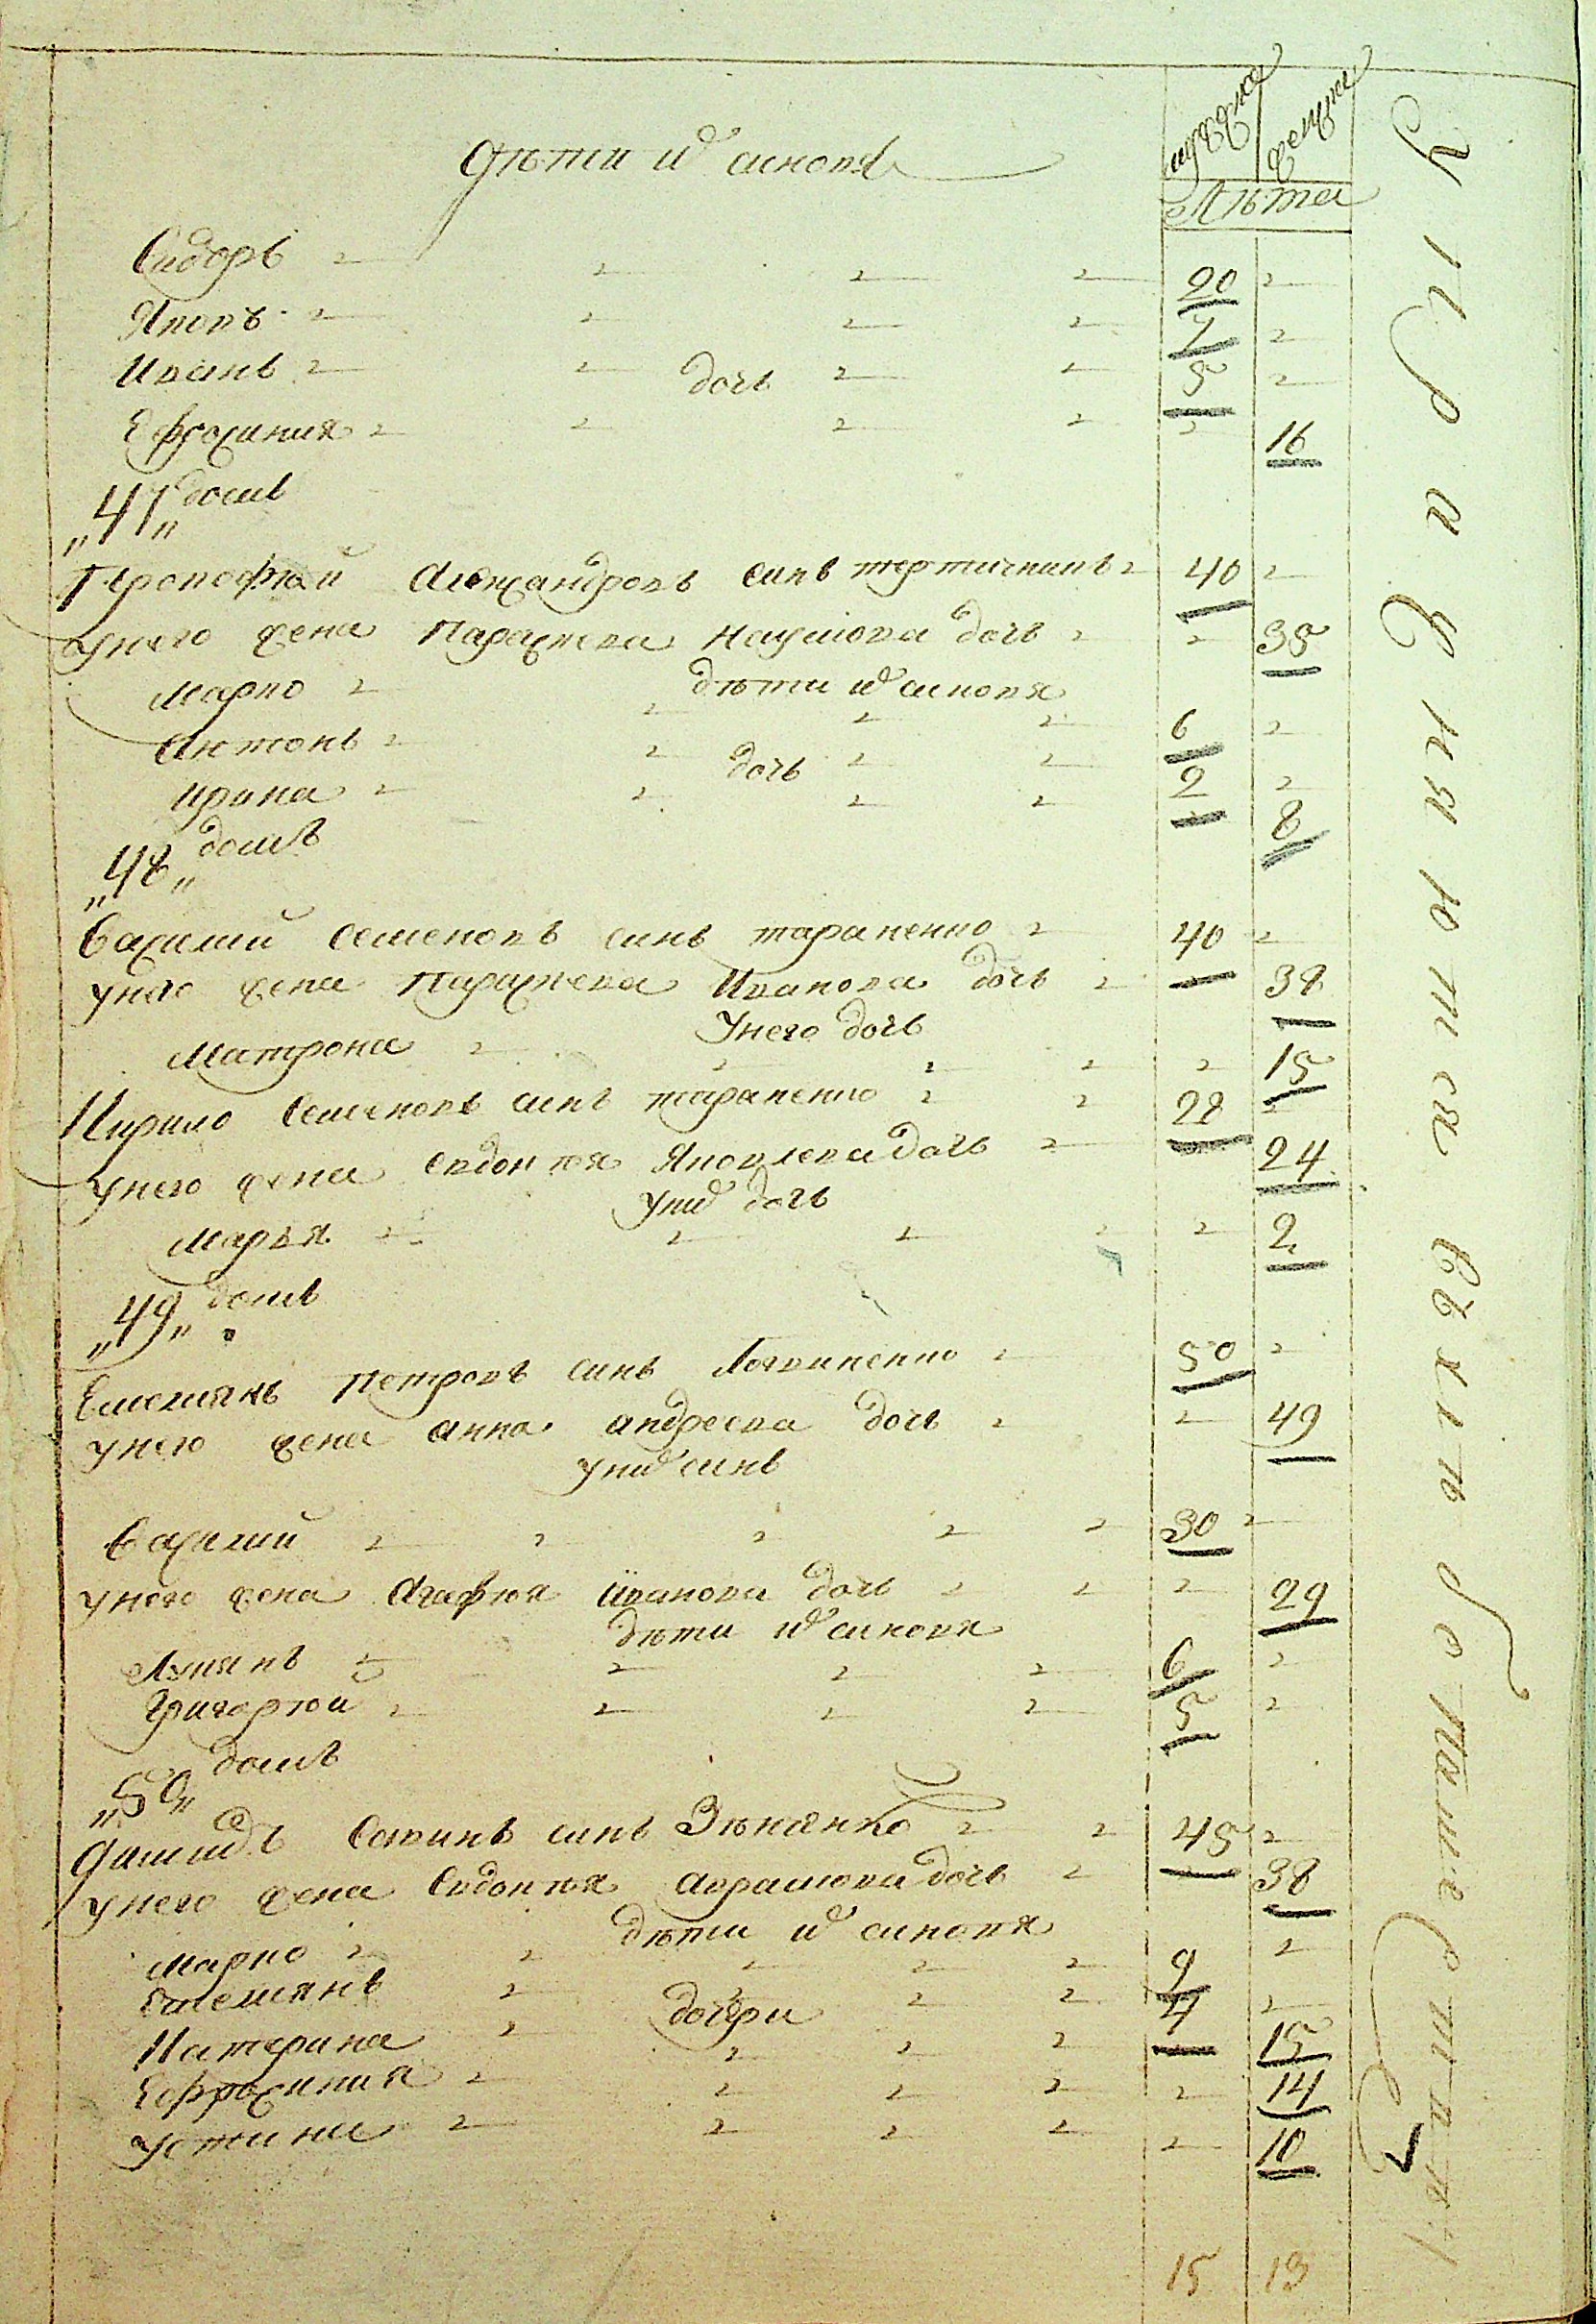 мужска женска
Дѣти их синовя
Лѣта
Сидоръ 20
Яковъ 7
Иванъ 5
дочь
Ефросиния 16
„47„ домъ
Ерофѣй Александровъ синъ тертичникъ 40
у него жена Параскева Наумова дочь 35
дѣти их синовя
Марко 6
Антонъ 2
дочь
Ирина 8
„48„ домъ
Василий Семеновъ синъ тараненко 40
у него жена Параскева Иванова дочь 38
У него дочь
Матрона 15
Кирило Семеновъ синъ тараненко 28
у него жена Евдокия Яковлева дочь 24
у них дочь
Марья 2
„49„ домъ
Емелиянъ Петровъ синъ Логвиненко 50
у него жена Анна Андреева дочь 49
у них синъ
Василий 30
у него жена Агафия Иванова дочь 29
дѣти их синовя
Лукянъ 6
Григорий 5
„50„ домъ
синъ Зѣнянко 45
у него жена Евдокия Аврамова дочь 38
дѣти их синовя
Марко 9
Емелиянъ 4
дочери
Катерина 15
Ефросиния 14
Устина 10
15 13